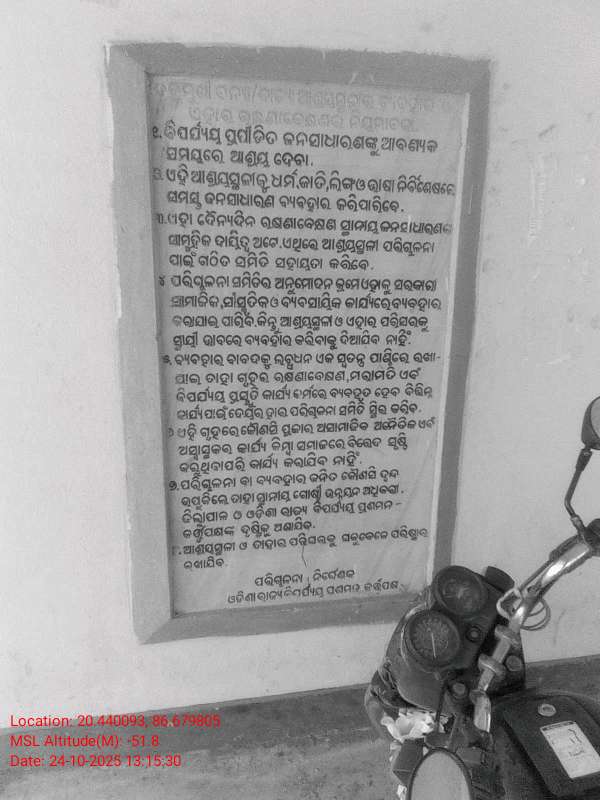 ୧. ବିପର୍ଯ୍ୟୟ ପ୍ରପୀଡିତ ଜନସାଧାରଣଙ୍କୁ ଆବଶ୍ୟକ
ସମୟରେ ଆଶ୍ରୟ ଦେବା.
ଏହି ଆଶ୍ରୟସ୍ଥଳୀକୁ ଧର୍ମ,ଜାତି,ଲିଙ୍ଗ ଓ ଭାଷା ନିର୍ବିଶେଷରେ
ସମସ୍ତ ଜନସାଧାରଣ ବ୍ୟବହାର କରିପାରିବେ.
୩. ଏହା ଦୈନ୍ୟଦିନ ରକ୍ଷଣାବେକ୍ଷଣ ସ୍ଥାନୀୟ ଜନସାଧାରଣଙ୍କ
ସାମୁହିକ ଦାୟିତ୍ୱ ଅଟେ.ଏଥିରେ ଆଶ୍ରୟସ୍ଥଳୀ ପରିଚାଳନା
ପାଇଁ ଗଠିତ ସମିତି ସହାୟତା କରିବେ.
୪ ପରିଚାଳନା ସମିତିର ଅନୁମୋଦନ କ୍ରମେ ଏହାକୁ ସରକାରୀ
ସାମାଜିକ,ସାଂସ୍କୃତିକ ଓ ବ୍ୟବସାୟିକ କାର୍ଯ୍ୟରେ ବ୍ୟବହାର
କରାଯାଇ ପାରିବ.କିନ୍ତୁ ଆଶ୍ରୟସ୍ଥଳୀ ଓ ଏହାର ପରିସରକୁ
ସ୍ଥାୟୀ ଭାବରେ ବ୍ୟବହାର କରିବାକୁ ଦିଆଯିବ ନାହିଁ.
୫. ବ୍ୟବହାର ବାବଦକୁ ଲବ୍ଧଧନ ଏକ ସ୍ୱତନ୍ତ୍ର ପାଣ୍ଠିରେ ରଖା-
ଯାଇ ତାହା ଗୃହର ରକ୍ଷଣାବେକ୍ଷଣ,ମରାମତି ଏବଂ
ବିପର୍ଯ୍ୟୟ ପ୍ରସ୍ତୁତି କାର୍ଯ୍ୟକ୍ରମରେ ବ୍ୟବହୃତ ହେବ ବିଭିନ୍ନ
କାର୍ଯ୍ୟ ପାଇଁ ଦେୟର ହାର ପରିଚାଳନା ସମିତି ସ୍ଥିର କରିବ.
୬ ଏହି ଗୃହରେ କୌଣସି ପ୍ରକାର ଅସାମାଜିକ ଅନୈତିକ ଏବଂ
ଅସ୍ୱାସ୍ଥ୍ୟକର କାର୍ଯ୍ୟ କିମ୍ବା ସମାଜରେ ବିଭେଦ ସୃଷ୍ଟି
କରୁଥିବାପରି କାର୍ଯ୍ୟ କରାଯିବ ନାହିଁ.
୭. ପରିଚାଳନା ବା ବ୍ୟବହାର ଜନିତ କୌଣସି ଦ୍ୱନ୍ଦ
ଉପୁଜିଲେ ତାହା ସ୍ଥାନୀୟ ଗୋଷ୍ଠୀ ଉନ୍ନୟନ ଅଧିକାରୀ.
ଜିଲ୍ଲାପାଳ ଓ ଓଡିଶା ରାଜ୍ୟ ବିପର୍ଯ୍ୟୟ ପ୍ରଶମନ-
କର୍ତ୍ତୃପକ୍ଷଙ୍କ ଦୃଷ୍ଟିକୁ ଅଣାଯିବ.
୮. ଆଶ୍ରୟସ୍ଥଳୀ ଓ ତାହାର ପରିସରକୁ ସବୁବେଳେ ପରିଷ୍କାର
ରଖାଯିବ.
ପରିଚାଳନା ନିର୍ଦ୍ଦେଶକ
ଓଡିଶା ରାଜ୍ୟ ବିପର୍ଯ୍ୟୟ ପ୍ରଶମନ କର୍ତ୍ତୃପକ୍ଷ
Location: 20.440093, 86.679805
MSL Altitude(M): -51.8
Date: 24-10-2025 13:15:30